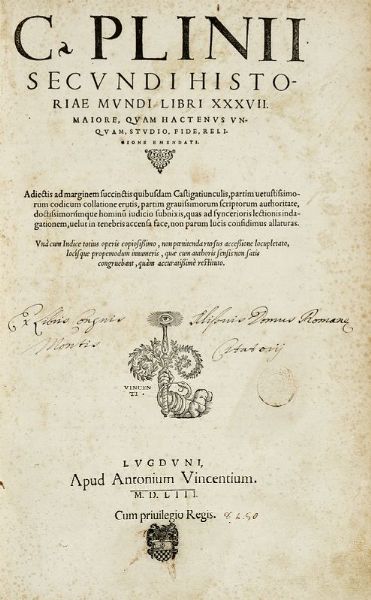 C. PLINII
SECVNDI HISTO-
RIAE MVNDI LIBRI XXXVII.
MAIORE, QVAM HACTENVS VN-
QVAM, STVDIO, FIDE, RELI-
GIONE EMENDATI.
Adiectis ad marginem succinctis quibusdam Castigatiunculis, partim uetustissimo-
rum codicum collatione erutis, partim grauissimorum scriptorum authoritate,
doctissimorumque hominũ iudicio subnixis, quas ad syncerioris lectionis inda-
gationem, uelut in tenebris accensa face, non parum lucis confidimus allaturas.
Vnà cum Indice totius operis copiosissimo, non pœnitenda rursus accessione locupletato,
locisque propemodum innumeris, quæ cum authoris sensu non satis
congruebant, quàm accuratissimè restituto.
Ex Libris Congnis Missionis Domus Romanæ
Montis Citatorij
VINCEN
TI.
LVGDVNI,
Apud Antonium Vincentium.
M. D. LIII.
Cum priuilegio Regis.